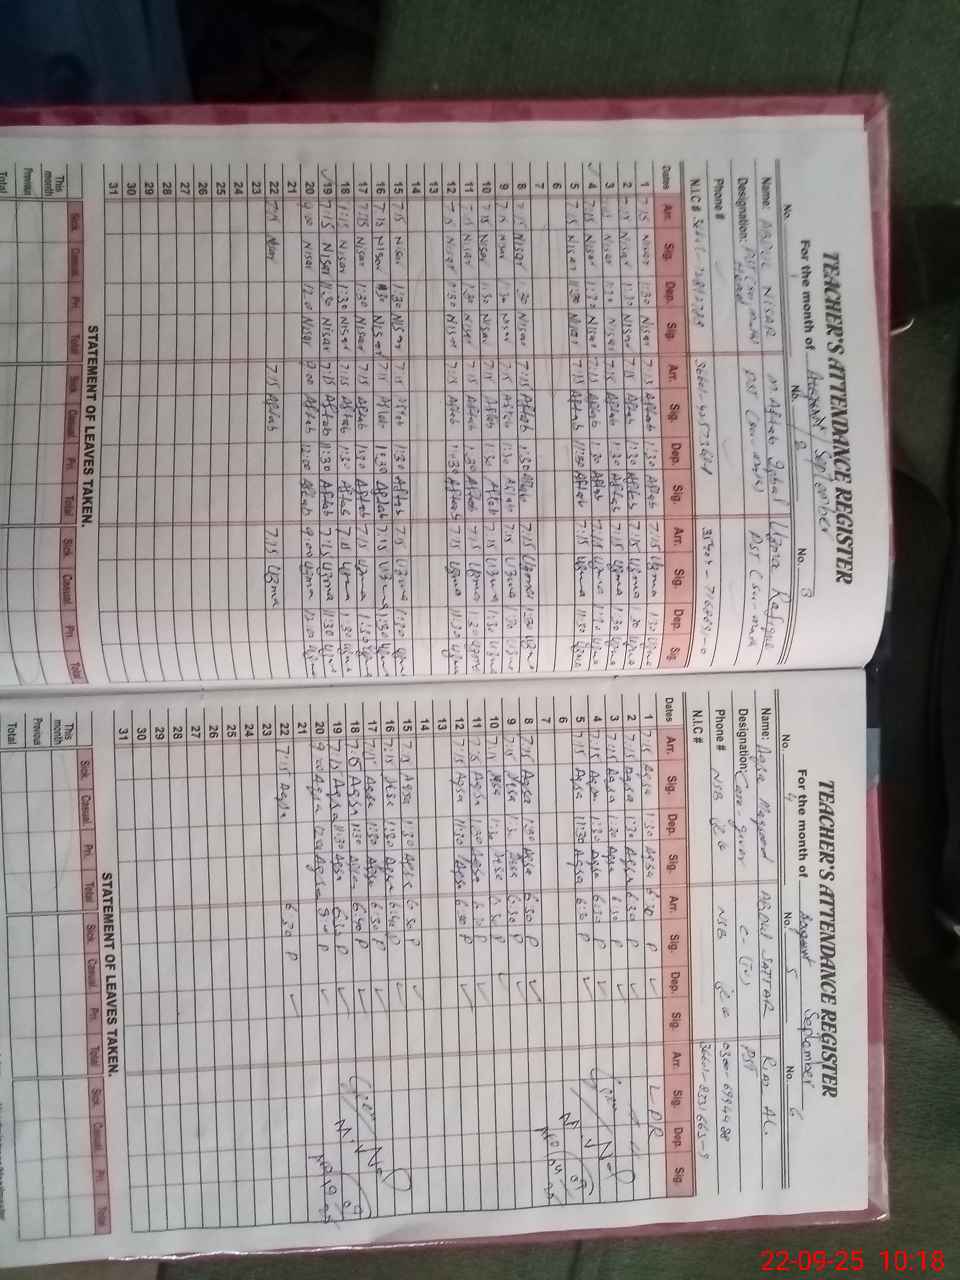 TEACHER'S ATTENDANCE REGISTER
For the month of September
No. No. 2 No. 3
Name: ABDUL NISAR M Aftab Iqbal Uzma Rafique
Designation: PST
Head
Phone #
N.I.C #
Dates Arr. Sig. Dep. Sig. Arr. Sig. Dep. Sig. Arr. Sig. Dep. Sig.
1 7:15 Nisar 1:30 Nisar 7:15 Aftab 1:30 Aftab 7:15 Uzma 1:30 Uzma
2 Nisar 1:30 Nisar 7:15 Aftab 1:30 Aftab 7:15 Uzma 1:30 Uzma
3 Nisar 1:30 Nisar 7:15 Aftab 1:30 Aftab 7:15 Uzma 1:30 Uzma
4 7:15 Nisar 1:30 Nisar 7:15 Aftab 1:30 Aftab 7:15 Uzma 1:30 Uzma
5 7:15 Nisar 11:30 Nisar 7:15 Aftab 11:30 Aftab 7:15 Uzma 11:30 Uzma
6
7
8 7:15 Nisar 1:30 Nisar 7:15 Aftab 1:30 Aftab 7:15 Uzma 1:30 Uzma
9 7:15 Nisar 1:30 Nisar 7:15 Aftab 1:30 Aftab 7:15 Uzma 1:30 Uzma
10 7:15 Nisar 1:30 Nisar 7:15 Aftab 1:30 Aftab 7:15 Uzma 1:30 Uzma
11 7:15 Nisar 1:30 Nisar 7:15 Aftab 1:30 Aftab 7:15 Uzma 1:30 Uzma
12 7:15 Nisar 11:30 Nisar 7:15 Aftab 11:30 Aftab 7:15 Uzma 11:30 Uzma
13
14
15 7:15 Nisar 1:30 Nisar 7:15 Aftab 1:30 Aftab 7:15 Uzma 1:30 Uzma
16 7:15 Nisar 1:30 Nisar 7:15 Aftab 1:30 Aftab 7:15 Uzma 1:30 Uzma
17 7:15 Nisar 1:30 Nisar 7:15 Aftab 1:30 Aftab 7:15 Uzma 1:30 Uzma
18 7:15 Nisar 1:30 Nisar 7:15 Aftab 1:30 Aftab 7:15 Uzma 1:30 Uzma
19 7:15 Nisar 11:30 Nisar 7:15 Aftab 11:30 Aftab 7:15 Uzma 11:30 Uzma
20 9:00 Nisar 12:00 Nisar 9:00 Aftab 12:00 Aftab 9:00 Uzma 12:00 Uzma
21
22 7:15 Nisar 7:15 Aftab 7:15 Uzma
23
24
25
26
27
28
29
30
31
STATEMENT OF LEAVES TAKEN.
Sick Casual Pri. Total Sick Casual Pri. Total Sick Casual Pri. Total
This month
Previous
Total
TEACHER'S ATTENDANCE REGISTER
For the month of September
No. 4 No. 5 No. 6
Name: Aqsa Maqsood ABDUL SATTAR
Designation: Care-giver PST
Phone # NSB NSB
N.I.C #
Dates Arr. Sig. Dep. Sig. Arr. Sig. Dep. Sig. Arr. Sig. Dep. Sig.
1 7:15 Aqsa 1:30 Aqsa 6:30 P ✓ LPR
2 7:15 Aqsa 1:30 Aqsa 6:30 P ✓
3 7:15 Aqsa 1:30 Aqsa 6:30 P ✓
4 7:15 Aqsa 1:30 Aqsa 6:30 P ✓
5 7:15 Aqsa 11:30 Aqsa 6:30 P ✓
6
7
8 7:15 Aqsa 1:30 Aqsa 6:30 P ✓
9 7:15 Aqsa 1:30 Aqsa 6:30 P ✓
10 7:15 Aqsa 1:30 Aqsa 6:30 P ✓
11 7:15 Aqsa 1:30 Aqsa 6:30 P ✓
12 7:15 Aqsa 11:30 Aqsa 6:30 P ✓
13
14
15 7:15 Aqsa 1:30 Aqsa 6:30 P ✓
16 7:15 Aqsa 1:30 Aqsa 6:40 P ✓
17 7:15 Aqsa 1:30 Aqsa 6:30 P ✓
18 7:15 Aqsa 1:30 Aqsa 6:40 P ✓
19 7:15 Aqsa 11:30 Aqsa P ✓
20 9:00 Aqsa 12:00 Aqsa P ✓
21
22 7:15 Aqsa 6:30 P ✓
23
24
25
26
27
28
29
30
31
STATEMENT OF LEAVES TAKEN.
Sick Casual Pri. Total Sick Casual Pri. Total Sick Casual Pri. Total
This month
Previous
Total
22-09-25 10:18